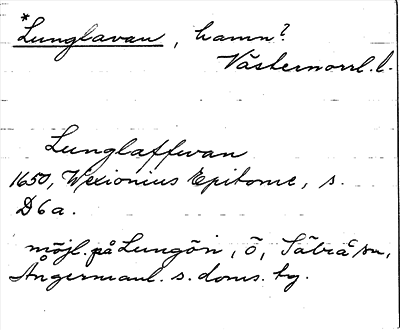 *Lunglavan, hamn?
Västernorrl. l.
Lunglaffwan
1650, Wexionius Epitome, s.
D6a.
möjl. på Lungön, ö, Säbrå sn,
Ångermanl. s. doms. tg.